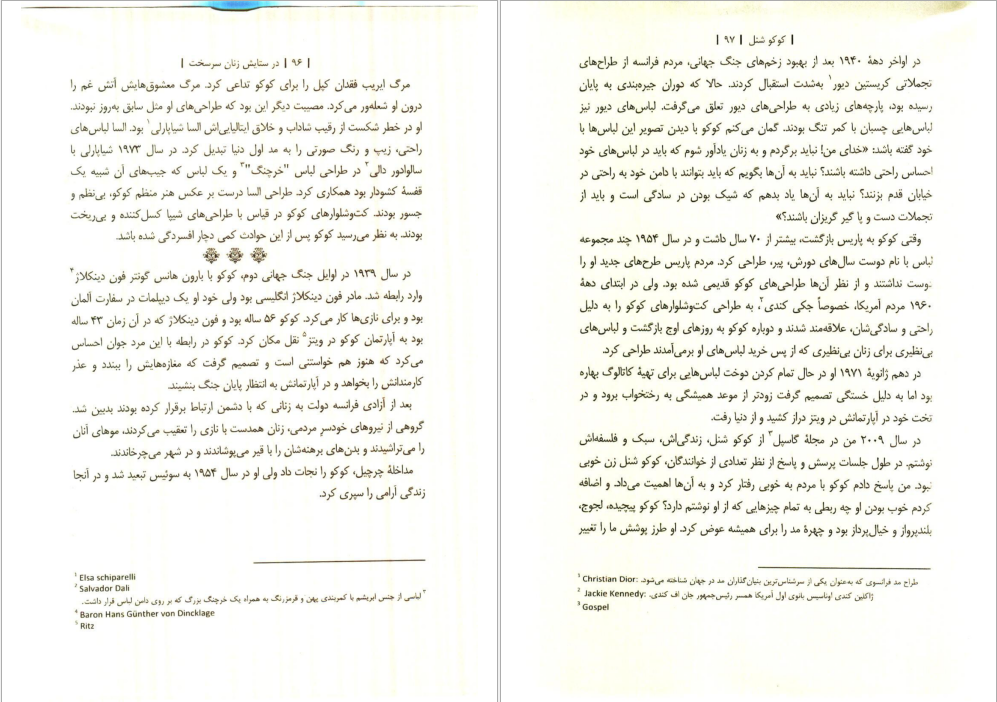 | ۹۶ | در ستایش زنان سرسخت |
مرگ ایریب فقدان کپل را برای کوکو تداعی کرد. مرگ معشوق‌هایش آتش غم را
درون او شعله‌ور می‌کرد. مصیبت دیگر این بود که طراحی‌های او مثل سابق به‌روز نبودند.
او در خطر شکست از رقیب شاداب و خلاق ایتالیایی‌اش السا شیاپارلی۱ بود. السا لباس‌های
راحتی، زیپ و رنگ صورتی را به مد اول دنیا تبدیل کرد. در سال ۱۹۷۳ شیاپارلی با
سالوادور دالی۲ در طراحی لباس "خرچنگ"۳ و یک لباس که جیب‌های آن شبیه یک
قفسهٔ کشودار بود همکاری کرد. طراحی السا درست بر عکس هنر منظم کوکو، بی‌نظم و
جسور بودند. کت‌وشلوارهای کوکو در قیاس با طراحی‌های شیپا کسل‌کننده و بی‌ریخت
بودند. به نظر می‌رسید کوکو پس از این حوادث کمی دچار افسردگی شده باشد.
در سال ۱۹۳۹ در اوایل جنگ جهانی دوم، کوکو با بارون هانس گونتر فون دینکلاژ۴
وارد رابطه شد. مادر فون دینکلاژ انگلیسی بود ولی خود او یک دیپلمات در سفارت آلمان
بود و برای نازی‌ها کار می‌کرد. کوکو ۵۶ ساله بود و فون دینکلاژ که در آن زمان ۴۳ ساله
بود به آپارتمان کوکو در ویتز۵ نقل مکان کرد. کوکو در رابطه با این مرد جوان احساس
می‌کرد که هنوز هم خواستنی است و تصمیم گرفت که مغازه‌هایش را ببندد و عذر
کارمندانش را بخواهد و در آپارتمانش به انتظار پایان جنگ بنشیند.
بعد از آزادی فرانسه دولت به زنانی که با دشمن ارتباط برقرار کرده بودند بدبین شد.
گروهی از نیروهای خودسرِ مردمی، زنان همدست با نازی را تعقیب می‌کردند، موهای آنان
را می‌تراشیدند و بدن‌های برهنه‌شان را با قیر می‌پوشاندند و در شهر می‌چرخاندند.
مداخلهٔ چرچیل، کوکو را نجات داد ولی او در سال ۱۹۵۴ به سوئیس تبعید شد و در آنجا
زندگی آرامی را سپری کرد.
1 Elsa schiparelli
2 Salvador Dali
۳ لباسی از جنس ابریشم با کمربندی پهن و قرمزرنگ به همراه یک خرچنگ بزرگ که بر روی دامن لباس قرار داشت.
4 Baron Hans Günther von Dincklage
5 Ritz
| کوکو شنل | ۹۷ |
در اواخر دههٔ ۱۹۴۰ بعد از بهبود زخم‌های جنگ جهانی، مردم فرانسه از طراح‌های
تجملاتی کریستین دیور۱ به‌شدت استقبال کردند. حالا که دوران جیره‌بندی به پایان
رسیده بود، پارچه‌های زیادی به طراحی‌های دیور تعلق می‌گرفت. لباس‌های دیور نیز
لباس‌هایی چسبان با کمر تنگ بودند. گمان می‌کنم کوکو با دیدن تصویر این لباس‌ها با
خود گفته باشد: «خدای من! نباید برگردم و به زنان یادآور شوم که باید در لباس‌های خود
احساس راحتی داشته باشند؟ نباید به آن‌ها بگویم که باید بتوانند با دامن خود به راحتی در
خیابان قدم بزنند؟ نباید به آن‌ها یاد بدهم که شیک بودن در سادگی است و باید از
تجملات دست و پا گیر گریزان باشند؟»
وقتی کوکو به پاریس بازگشت، بیشتر از ۷۰ سال داشت و در سال ۱۹۵۴ چند مجموعه
لباس با نام دوست سال‌های دورش، پیر، طراحی کرد. مردم پاریس طرح‌های جدید او را
دوست نداشتند و از نظر آن‌ها طراحی‌های کوکو قدیمی شده بود. ولی در ابتدای دههٔ
۱۹۶۰ مردم آمریکا، خصوصاً جکی کندی۲، به طراحی کت‌وشلوارهای کوکو به دلیل
راحتی و سادگی‌شان، علاقه‌مند شدند و دوباره کوکو به روزهای اوج بازگشت و لباس‌های
بی‌نظیری برای زنان بی‌نظیری که از پس خرید لباس‌های او برمی‌آمدند طراحی کرد.
در دهم ژانویهٔ ۱۹۷۱ او در حال تمام کردن دوخت لباس‌هایی برای تهیهٔ کاتالوگ بهاره
بود اما به دلیل خستگی تصمیم گرفت زودتر از موعد همیشگی به رختخواب برود و در
تخت خود در آپارتمانش در ویتز دراز کشید و از دنیا رفت.
در سال ۲۰۰۹ من در مجلهٔ گاسپل۳ از کوکو شنل، زندگی‌اش، سبک و فلسفه‌اش
نوشتم. در طول جلسات پرسش و پاسخ از نظر تعدادی از خوانندگان، کوکو شنل زن خوبی
نبود. من پاسخ دادم کوکو با مردم به خوبی رفتار کرد و به آن‌ها اهمیت می‌داد. و اضافه
کردم خوب بودن او چه ربطی به تمام چیزهایی که از او نوشتم دارد؟ کوکو پیچیده، لجوج،
بلندپرواز و خیال‌پرداز بود و چهرهٔ مد را برای همیشه عوض کرد. او طرز پوشش ما را تغییر
1 Christian Dior: طراح مد فرانسوی که به‌عنوان یکی از سرشناس‌ترین بنیان‌گذاران مد در جهان شناخته می‌شود.
2 Jackie Kennedy: ژاکلین کندی اوناسیس بانوی اول آمریکا همسر رئیس‌جمهور جان اف کندی.
3 Gospel